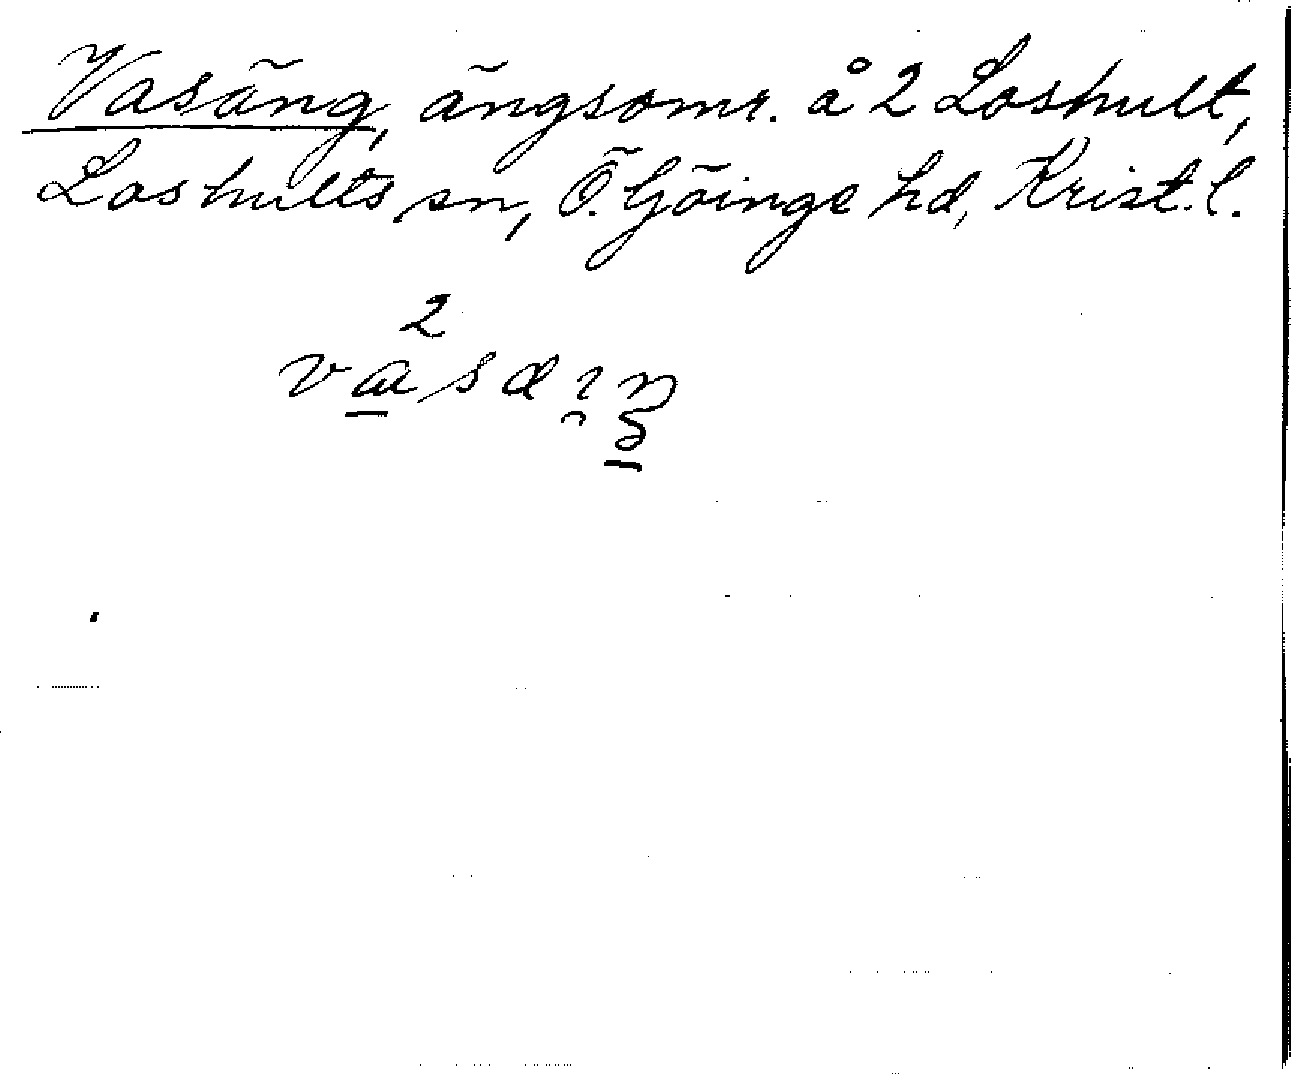 Vasäng, ängsomr. å 2 Loshult,
Loshults sn, Ö. Göinge hd, Krist. l.
2